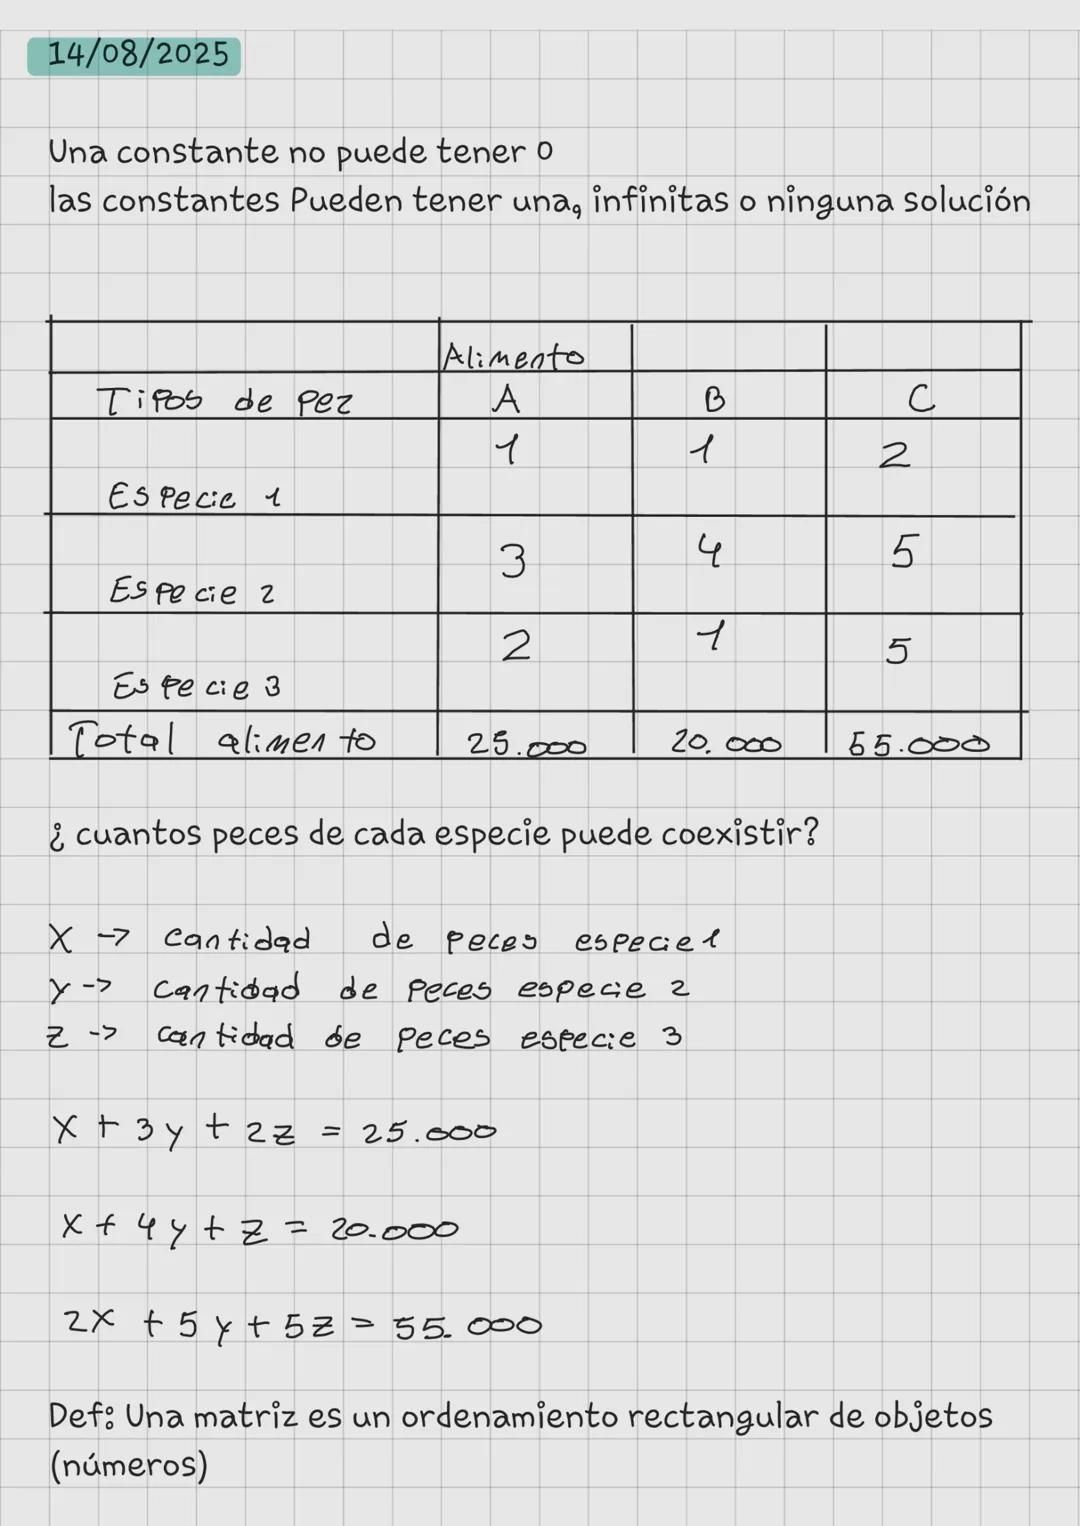 14/08/2025
Una constante no puede tener 0
las constantes Pueden tener una, infinitas o ninguna solución
Alimento
Tipos de pez A B C
1 1 2
Especie 1
3 4 5
Especie 2
2 1 5
Especie 3
Total alimento 25.000 20.000 55.000
¿ cuantos peces de cada especie puede coexistir?
X -> cantidad de peces especie 1
y -> cantidad de peces especie 2
z -> cantidad de peces especie 3
x + 3y + 2z = 25.000
x + 4y + z = 20.000
2x + 5y + 5z = 55.000
Def: Una matriz es un ordenamiento rectangular de objetos
(números)